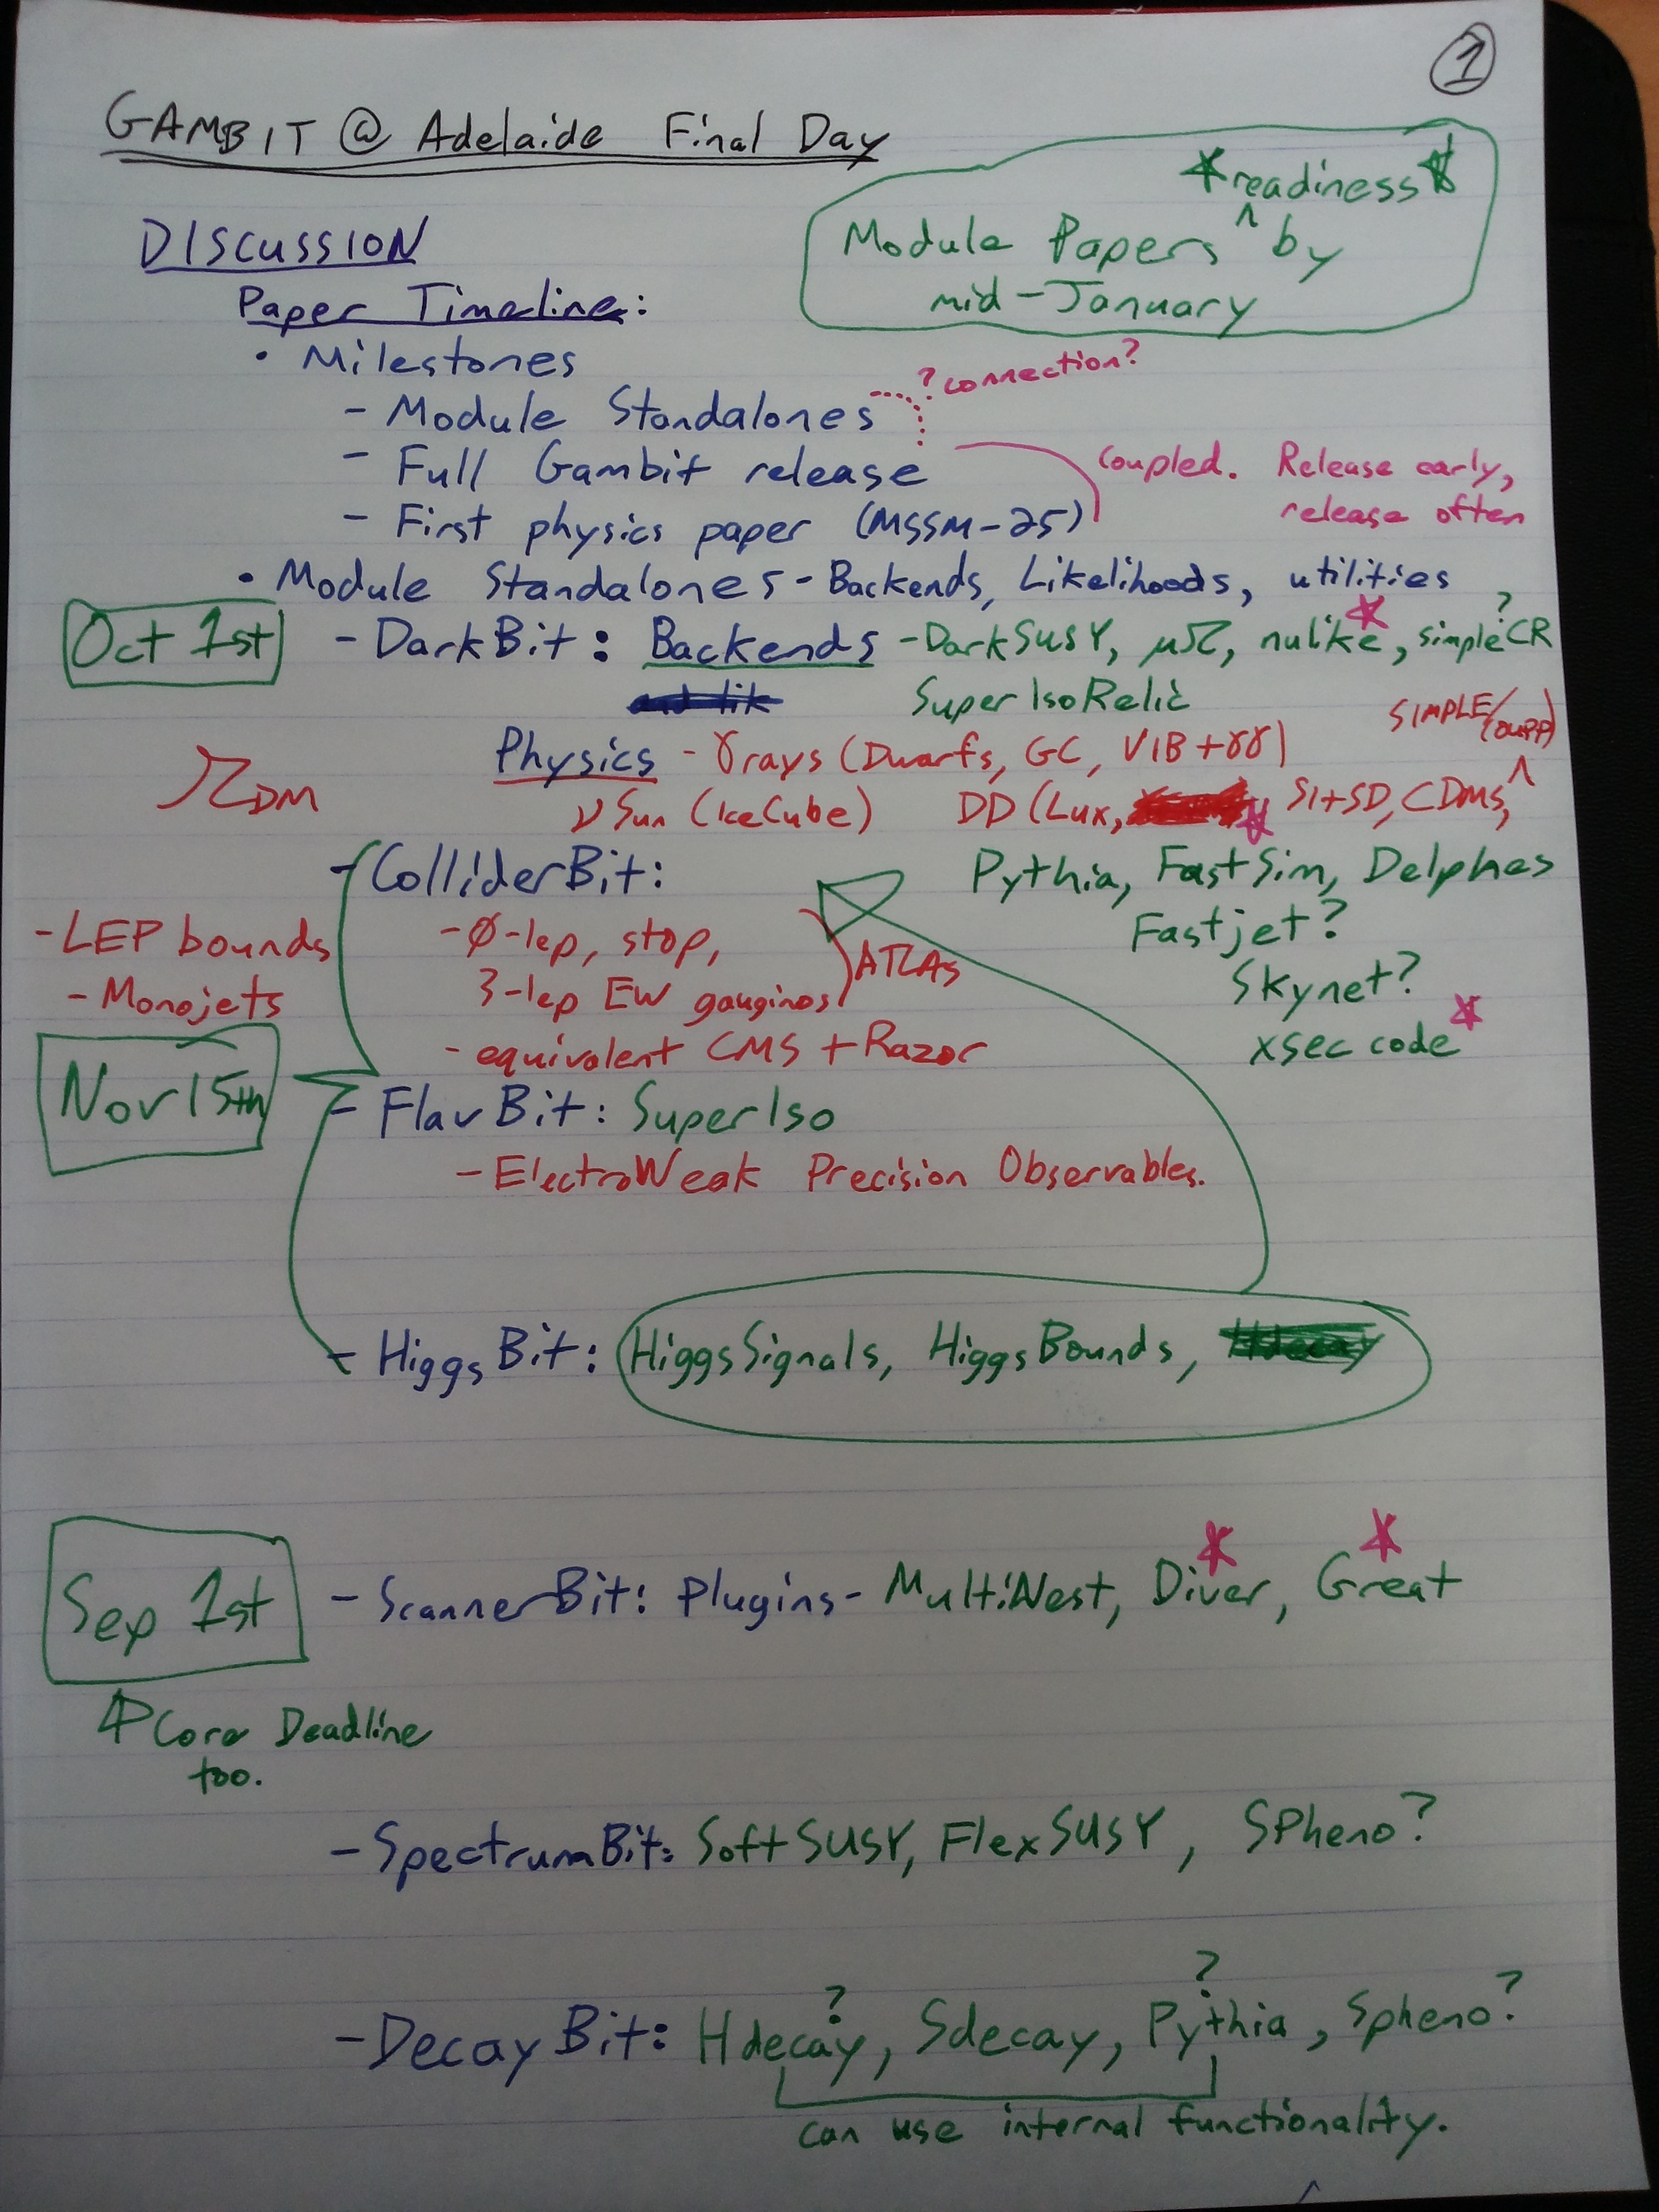 1
GAMBIT @ Adelaide Final Day
*readiness*
Module Papers ^ by
mid-January
DISCUSSION
Paper Timeline:
• Milestones
- Module Standalones
? connection?
- Full Gambit release
Coupled. Release early,
release often
- First physics paper (MSSM-25)
• Module Standalones - Backends, Likelihoods, utilities
Oct 1st
- DarkBit: Backends - DarkSUSY, μΩ, nulike*, simple CR?
SuperIsoRelic
Physics - γrays (Dwarfs, GC, VIB+γγ)
SIMPLE/
νSun (IceCube) DD (Lux, * SI+SD, CDMS, ^
ΩDM
- ColliderBit:
Pythia, FastSim, Delphes
Fastjet?
Skynet?
xsec code*
- LEP bounds
- Monojets
- Ø-lep, stop,
3-lep EW gauginos
ATLAS
- equivalent CMS + Razor
Nov 15th
- FlavBit: SuperIso
- ElectroWeak Precision Observables.
- HiggsBit: HiggsSignals, HiggsBounds,
Sep 1st
- ScannerBit: Plugins - MultiNest, Diver*, Great*
Core Deadline
too.
- SpectrumBit: SoftSUSY, FlexSUSY, SPheno?
- DecayBit: Hdecay?, Sdecay, Pythia?, Spheno?
can use internal functionality.